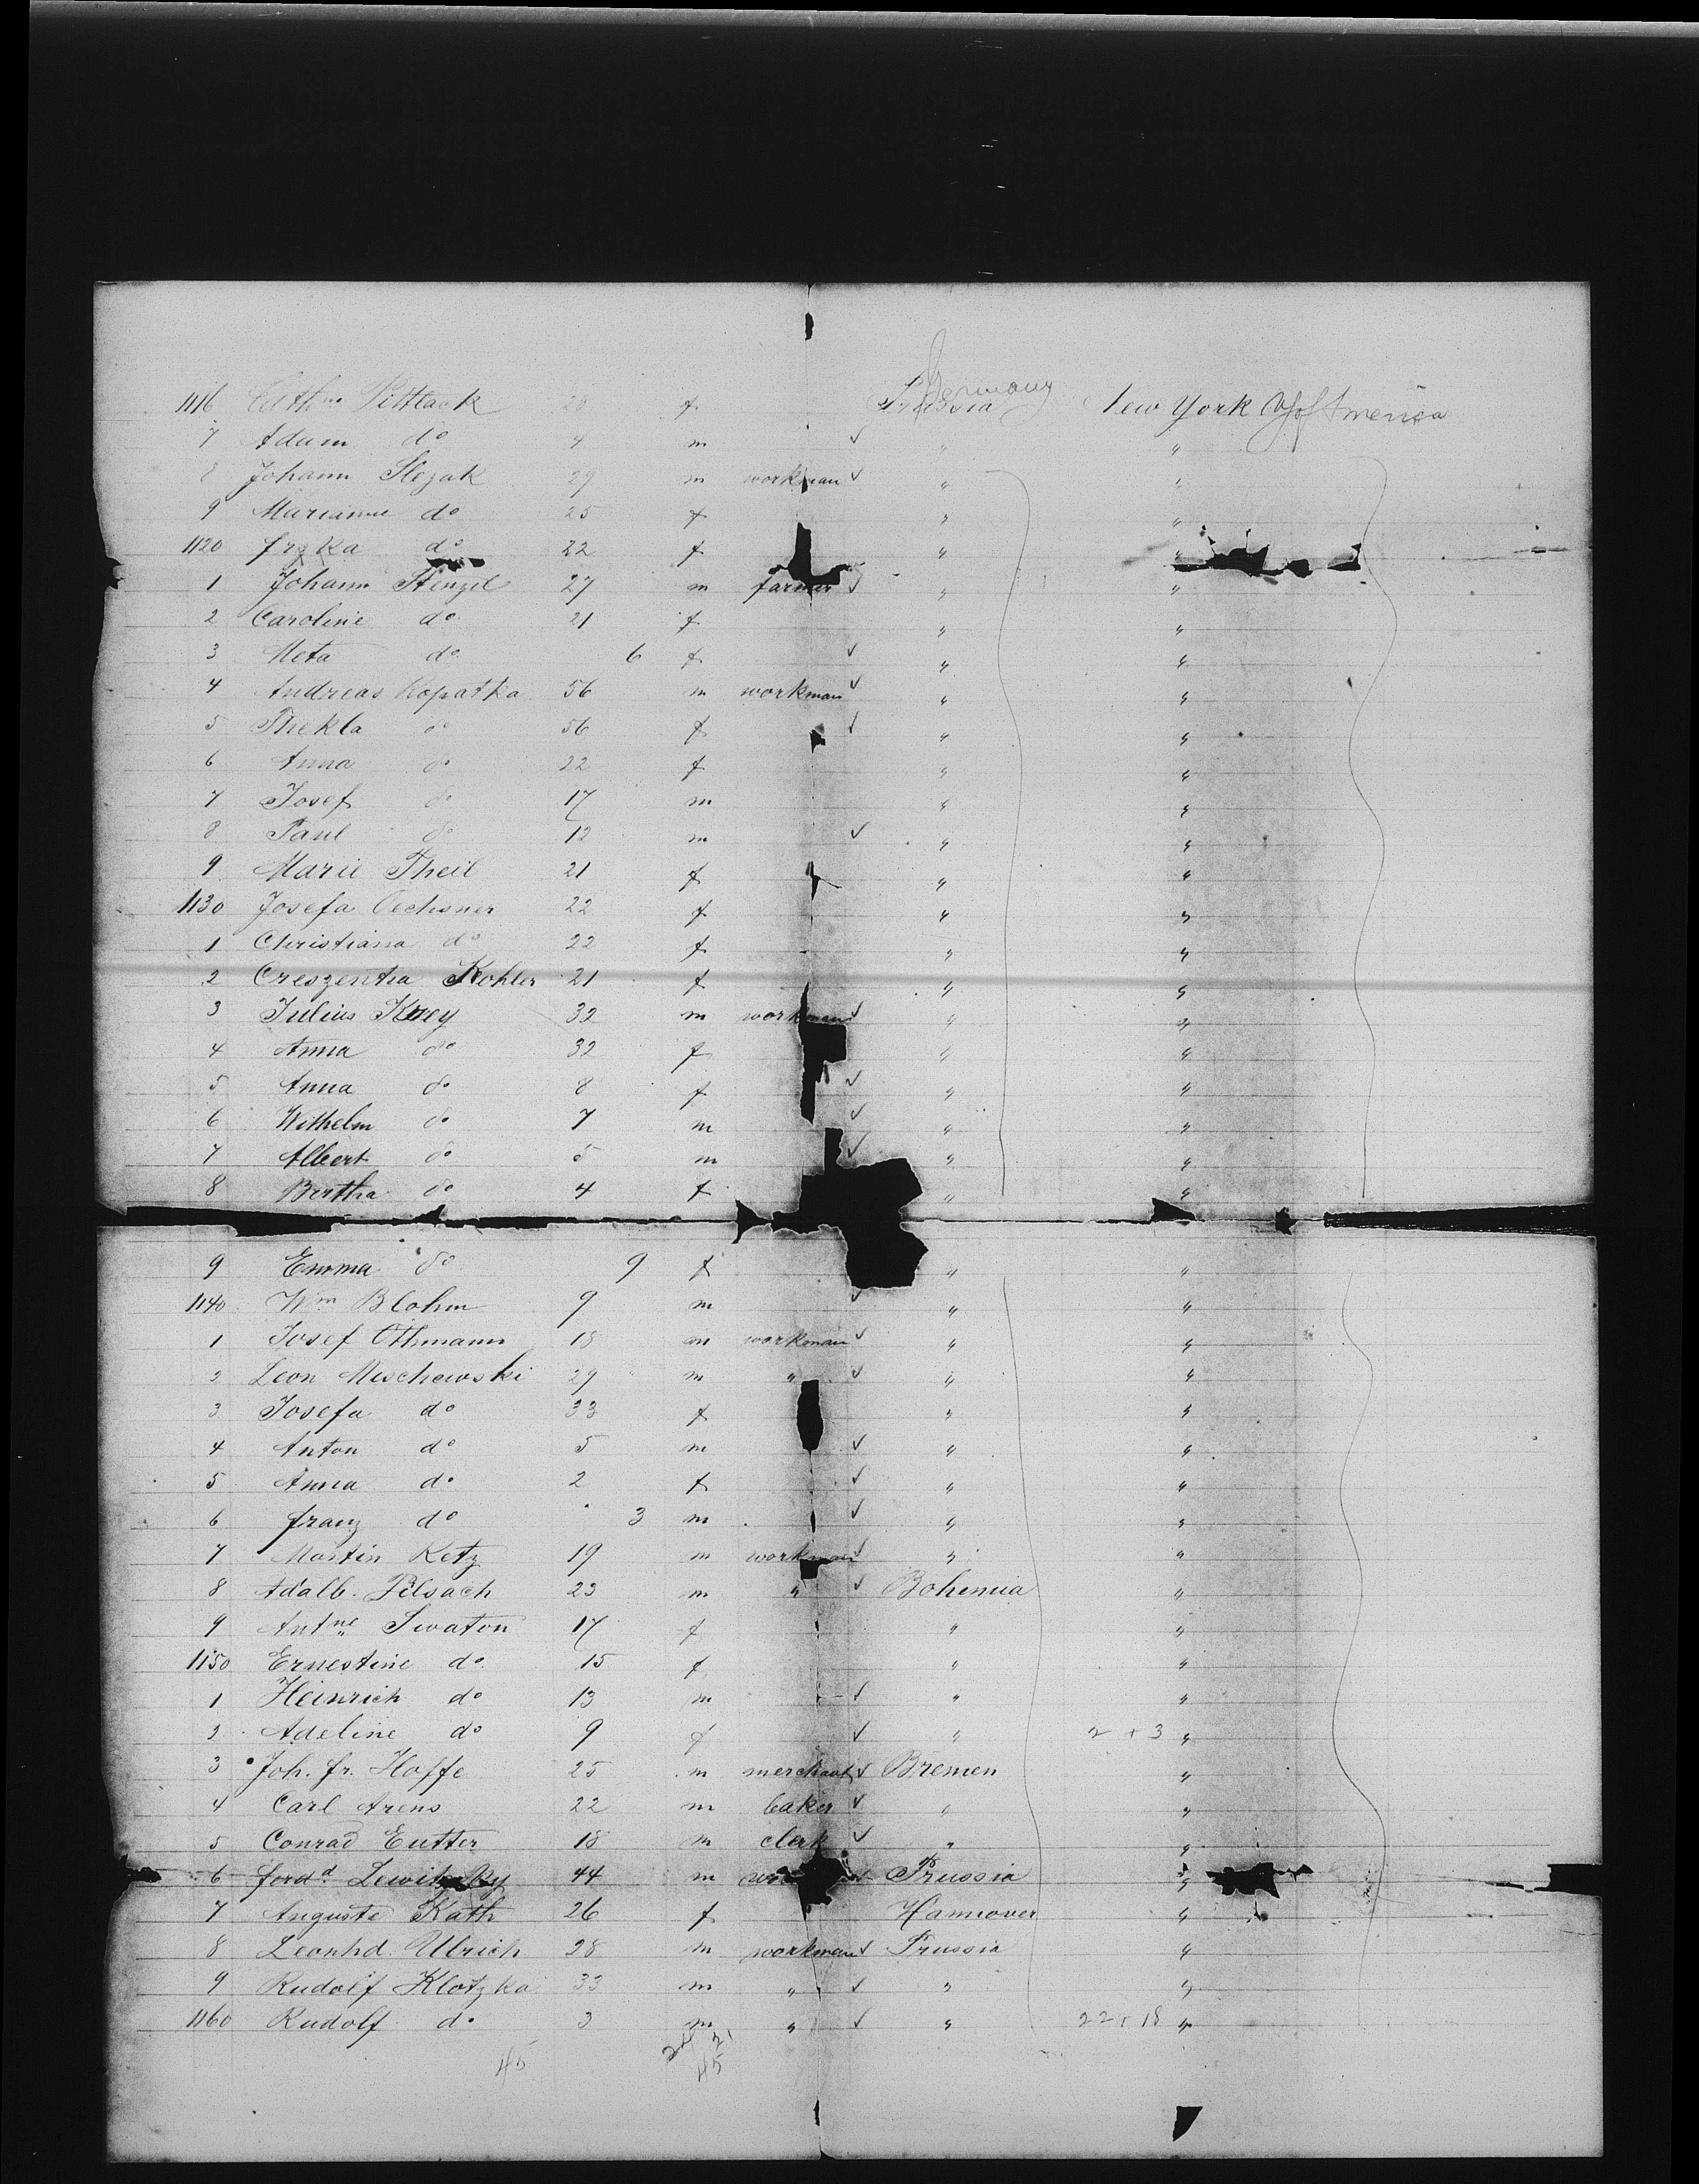 Germany
1116 Cath. Pittlack 28 f Prussia New York U S of America
7 Adam do 4 m ✓ " "
8 Johann Slezak 29 m workman ✓ " "
9 Marianne do 25 f " "
1120 do 22 f " "
1 Johann Stenzel 27 m farmer ✓ " "
2 Caroline do 21 f " "
3 Meta do 6 f ✓ " "
4 Andreas Kopatka 56 m workman ✓ " "
5 Thekla do 56 f ✓ " "
6 Anna do 22 f " "
7 Josef do 17 m " "
8 Paul do 12 m ✓ " "
9 Marie Theil 21 f " "
1130 Josefa Oechsner 22 f " "
1 Christiana do 22 f " "
2 Creszentia Kohler 21 f " "
3 Julius Krey 32 m workman ✓ " "
4 Anna do 32 f " "
5 Anna do 8 f ✓ " "
6 Wilhelm do 7 m ✓ " "
7 Albert do 5 m ✓ " "
8 Bertha do 4 f " "
9 Emma do 9 f " "
1140 Wm Blohm 9 m ✓ " "
1 Josef Othmann 18 m workman ✓ " "
2 Leon Mischewski 29 m " ✓ " "
3 Josefa do 33 f " "
4 Anton do 5 m ✓ " "
5 Anna do 2 f ✓ " "
6 Franz do 3 m ✓ " "
7 Martin Retz 19 m workman ✓ " "
8 Adalb. Pilsach 23 m " ✓ Bohemia "
9 Antne Swaton 17 f " "
1150 Ernestine do 15 f " "
1 Heinrich do 13 m ✓ " "
2 Adeline do 9 f ✓ " 2 + 3 "
3 Joh. Fr. Hoffe 25 m merchant ✓ Bremen "
4 Carl Arens 22 m baker ✓ " "
5 Conrad Eutter 18 m clerk ✓ " "
6 Ferdd Lewitzky 44 m ✓ Prussia "
7 Auguste Kath 26 f Hannover "
8 Leonhd. Ulrich 28 m workman ✓ Prussia "
9 Rudolf Klotzka 33 m " ✓ " "
1160 Rudolf do 3 m " ✓ " 22 + 18 "
24 21
45 45